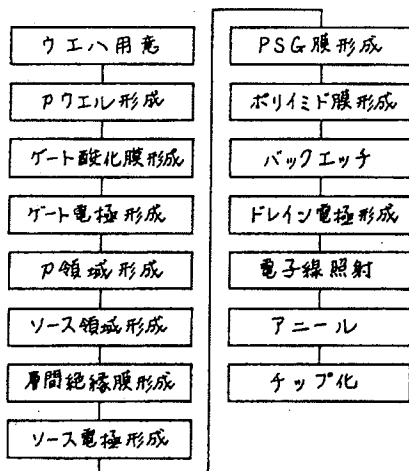 ウエハ用意
pウエル形成
ゲート酸化膜形成
ゲート電極形成
p領域形成
ソース領域形成
層間絶縁膜形成
ソース電極形成
PSG膜形成
ポリイミド膜形成
バックエッチ
ドレイン電極形成
電子線照射
アニール
チップ化